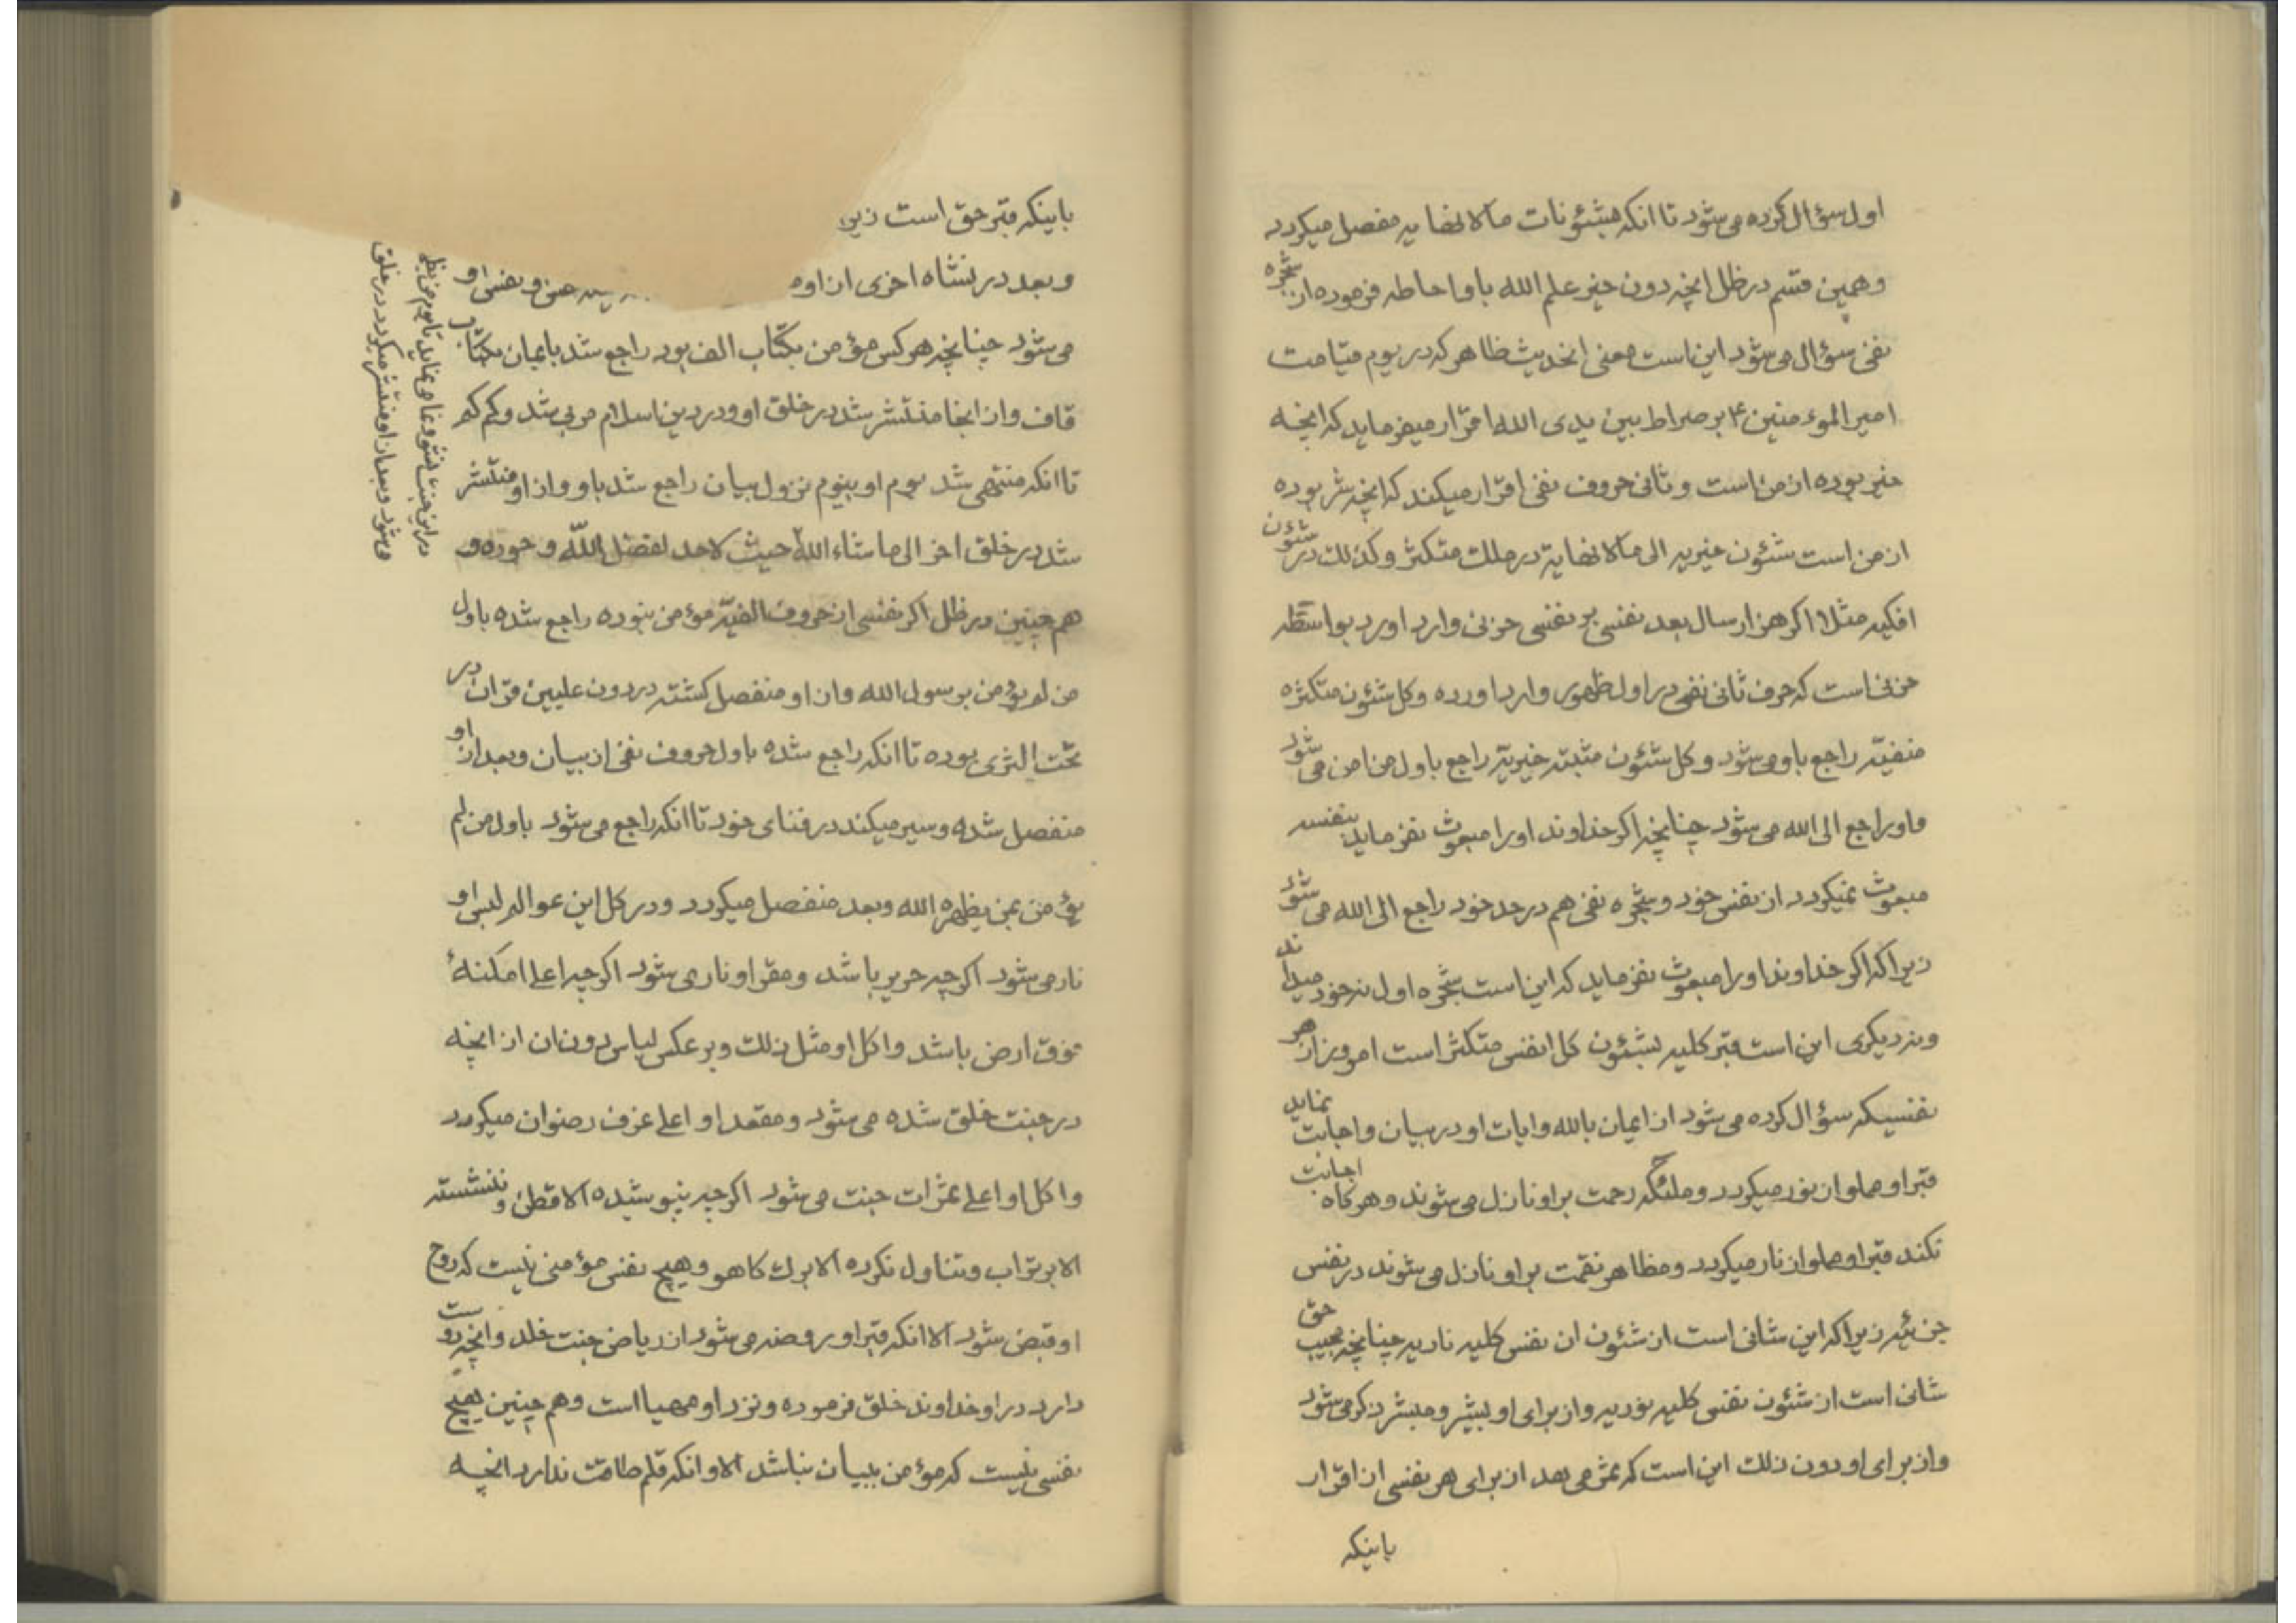 اول سؤال کرده می‌شود تا انکه بشئونات ما لا نهایه مفصل میکردد
و همین قسم در ظل انچه دون خیر علم الله باو احاطه فرموده از شجره
نفی سؤال می‌شود این است معنی انحدیث ظاهر که در یوم قیامت
امیر الموءمنین ۴ بر صراط بین یدی الله اقرار میفرماید که انچه
خیر بوده از من است و ثانی حروف نفی اقرار میکند که انچه شر بوده
از من است شئون خیریه الی ما لا نهایة در ملک متکثر و کذلک در شئون
افکیه مثلا اکر هزار سال بعد نفسی بر نفسی حزنی وارد اورد بواسطه
حزنی است که حرف ثانی نفی در اول ظهور وارد اورده و کل شئون متکثره
منفیّه راجع باو می‌شود و کل شئون مثبته خیریّه راجع باول من امن می شود
و او راجع الی الله می‌شود چنانچه اکر خداوند او را مبعوث نفرماید بنفسه
مبعوث نمیکردد از نفس خود و شجره نفی هم در حد خود راجع الی الله می شود
زیرا که اکر خداوند او را مبعوث نفرماید که این است شجره اول نه خود میداند
و نه دیکری این است قبر کلیه بشئون کل انفس متکثر است امروز از هر
نفسیکه سؤال کرده می‌شود از ایمان بالله و ایات او در بیان و اجابت نماید
قبر او مملو از نور میکردد و ملئکه رحمت بر او نازل می‌شوند و هرکاه اجابت
نکند قبر او مملو از نار میکردد و مظاهر نقمت بر او نازل می‌شوند در نفس
جزئیه زیرا که این شانی است از شئون ان نفس کلیه ناریه چنانچه مجیب حق
شانی است از شئون نفس کلیه نوریه و از برای او بشیر و مبشر ذکر می‌شود
و از برای او دون ذلک این است که ثمر می دهد از برای هر نفسی از اقرار
باینکه
باینکه قبر حق است زیر
و بعد در نشاه اخری از او ه حتی و نفس او
می‌شود چنانچه هر کس مؤمن بکتاب الف بود راجع شد بایمان بکتاب
قاف و از انجا منتشر شد در خلق او و در دین اسلام مربی شد و کم کم
تا انکه منتهی شد یوم او بیوم نزول بیان راجع شد باو و از او منتشر
شد در خلق اخر الی ما شاء الله حیث لا حد لفضل الله و جوده و
هم چنین در ظل اکر نفسی از حروف الفیّه مؤمن نبوده راجع شده باول
من لم یؤمن برسول الله و از او منفصل کشته در دون علیین قران در
تحت الثری بوده تا انکه راجع شده باول حروف نفی از بیان و بعد از او
منفصل شده و سیر میکند در فنای خود تا انکه راجع می‌شود باول من لم
یؤمن بمن یظهره الله و بعد منفصل میکردد و در کل این عوالم لبس او
نار می‌شود اکر چه حریر باشد و مقر او نار می‌شود اکر چه اعلی امکنهٔ
فوق ارض باشد و اکل او مثل ذلک و بر عکس لباس دون ان از انچه
در جنت خلق شده می‌شود و مقعد او اعلی غرف رضوان میکردد
و اکل او اعلی ثمرات جنت می‌شود اکر چه نپوشیده الا قطن و ننشسته
الا بر تراب و تناول نکرده الا برک کاهو و هیچ نفس مؤمنی نیست که روح
او قبض شود الا انکه قبر او روضه می‌شود از ریاض جنت خلد و انچه دوست
دارد در او خداوند خلق فرموده و نزد او مهیا است و هم چنین هیچ
نفسی نیست که مؤمن ببیان نباشد الا و انکه قلم طاقت ندارد انچه
در این جنت نشو و نما می نماید تا یوم من یظ
می‌شود و بعد از او منتشر میکردد در خلق